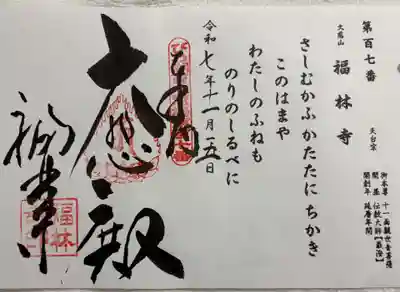 第百七番
大慈山
福林寺
天台宗
御本尊 十一面観世音菩薩
開基 伝教大師【最澄】
開創年 延暦年間
さしむかふ かたたに ちかき
このはまや
わたしのふねも
のりのしるべに
令和七年十一月一五日
奉拝
大悲殿
福林寺
福林